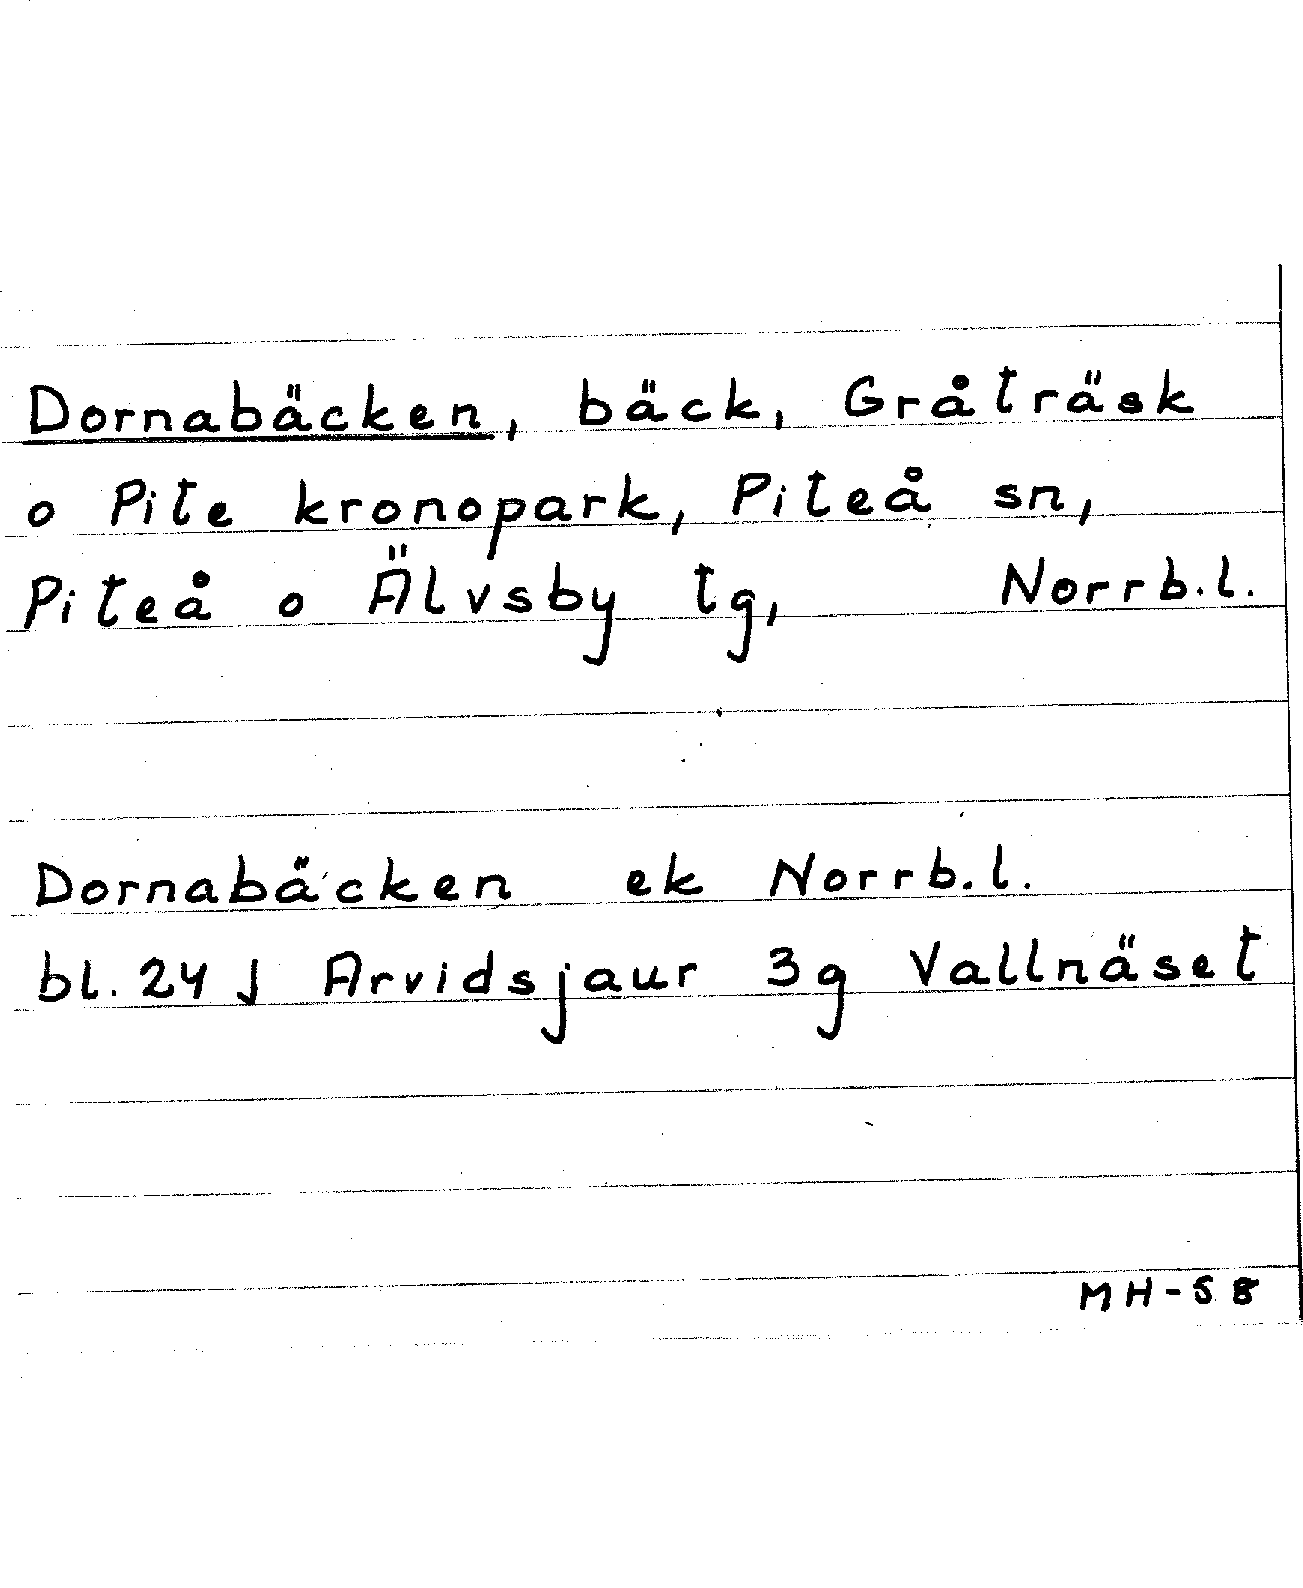 Dornabäcken, bäck, Gråträsk
o Pite kronopark, Piteå sn,
Piteå o Älvsby tg, Norrb.l.
Dornabäcken ek Norrb.l.
bl. 24 J Arvidsjaur 3g Vallnäset
MH-58